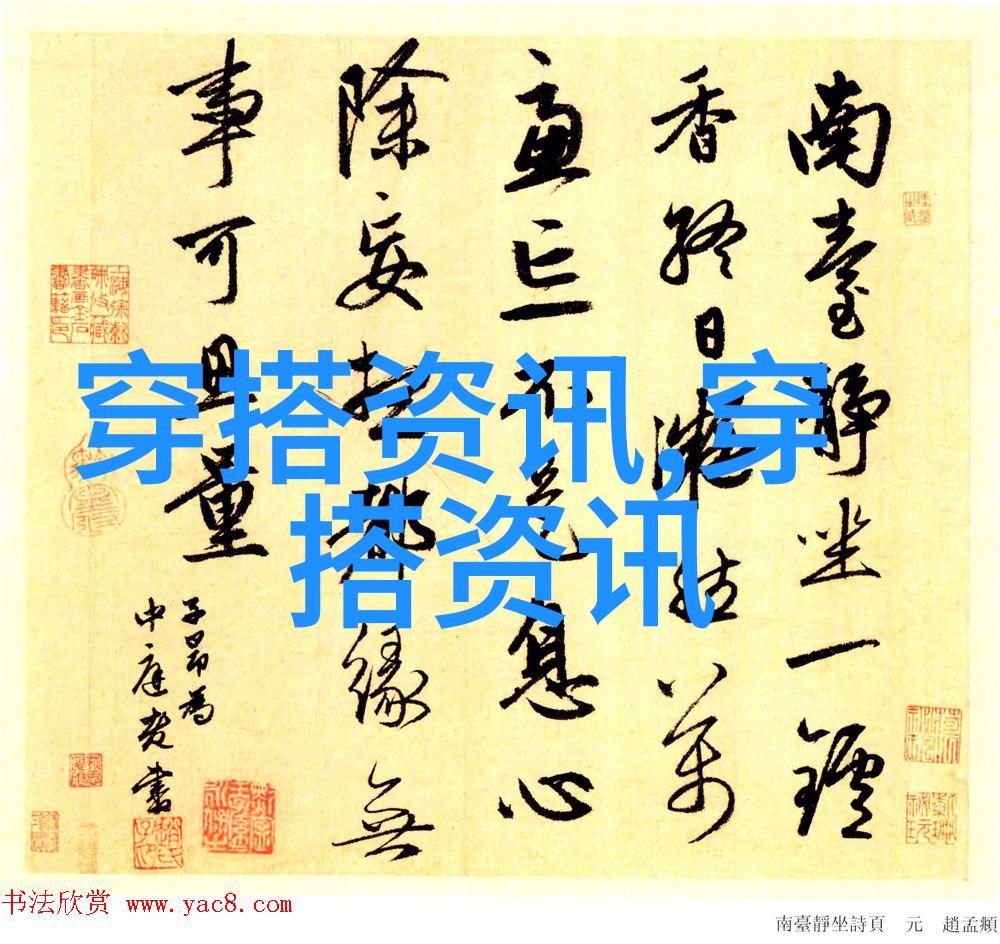 南臺静坐一鑪
香終日凝然萬
慮亡不是息心
除妄想都緣無
事可思量
子昂為
中庭老書
穿搭资讯,穿
搭资讯
书法欣赏 www.yac8.com
南臺靜坐詩頁 元 趙孟頫